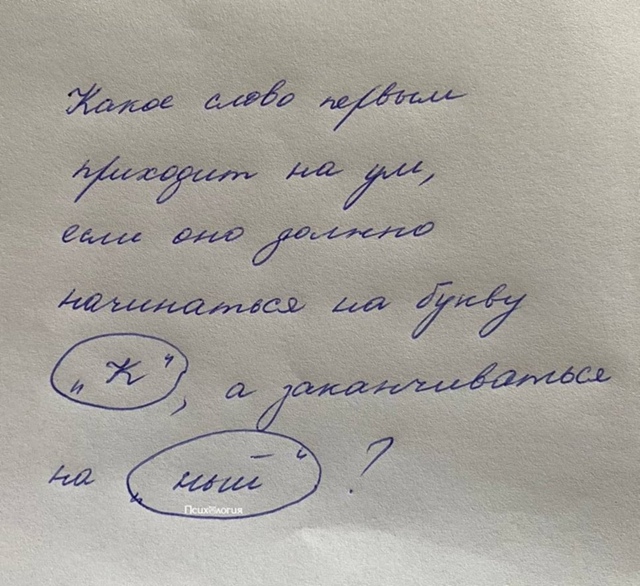 Какое слово первым
приходит на ум,
если оно должно
начинаться на букву
„К“, а заканчиваться
на „ный“ ?
Психология